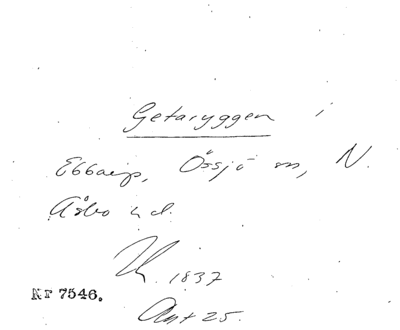 Getaryggen i
Ebbarp, Össjö sn, N.
Åsbo hd.
1837
Nr 7546.
Ant 25.